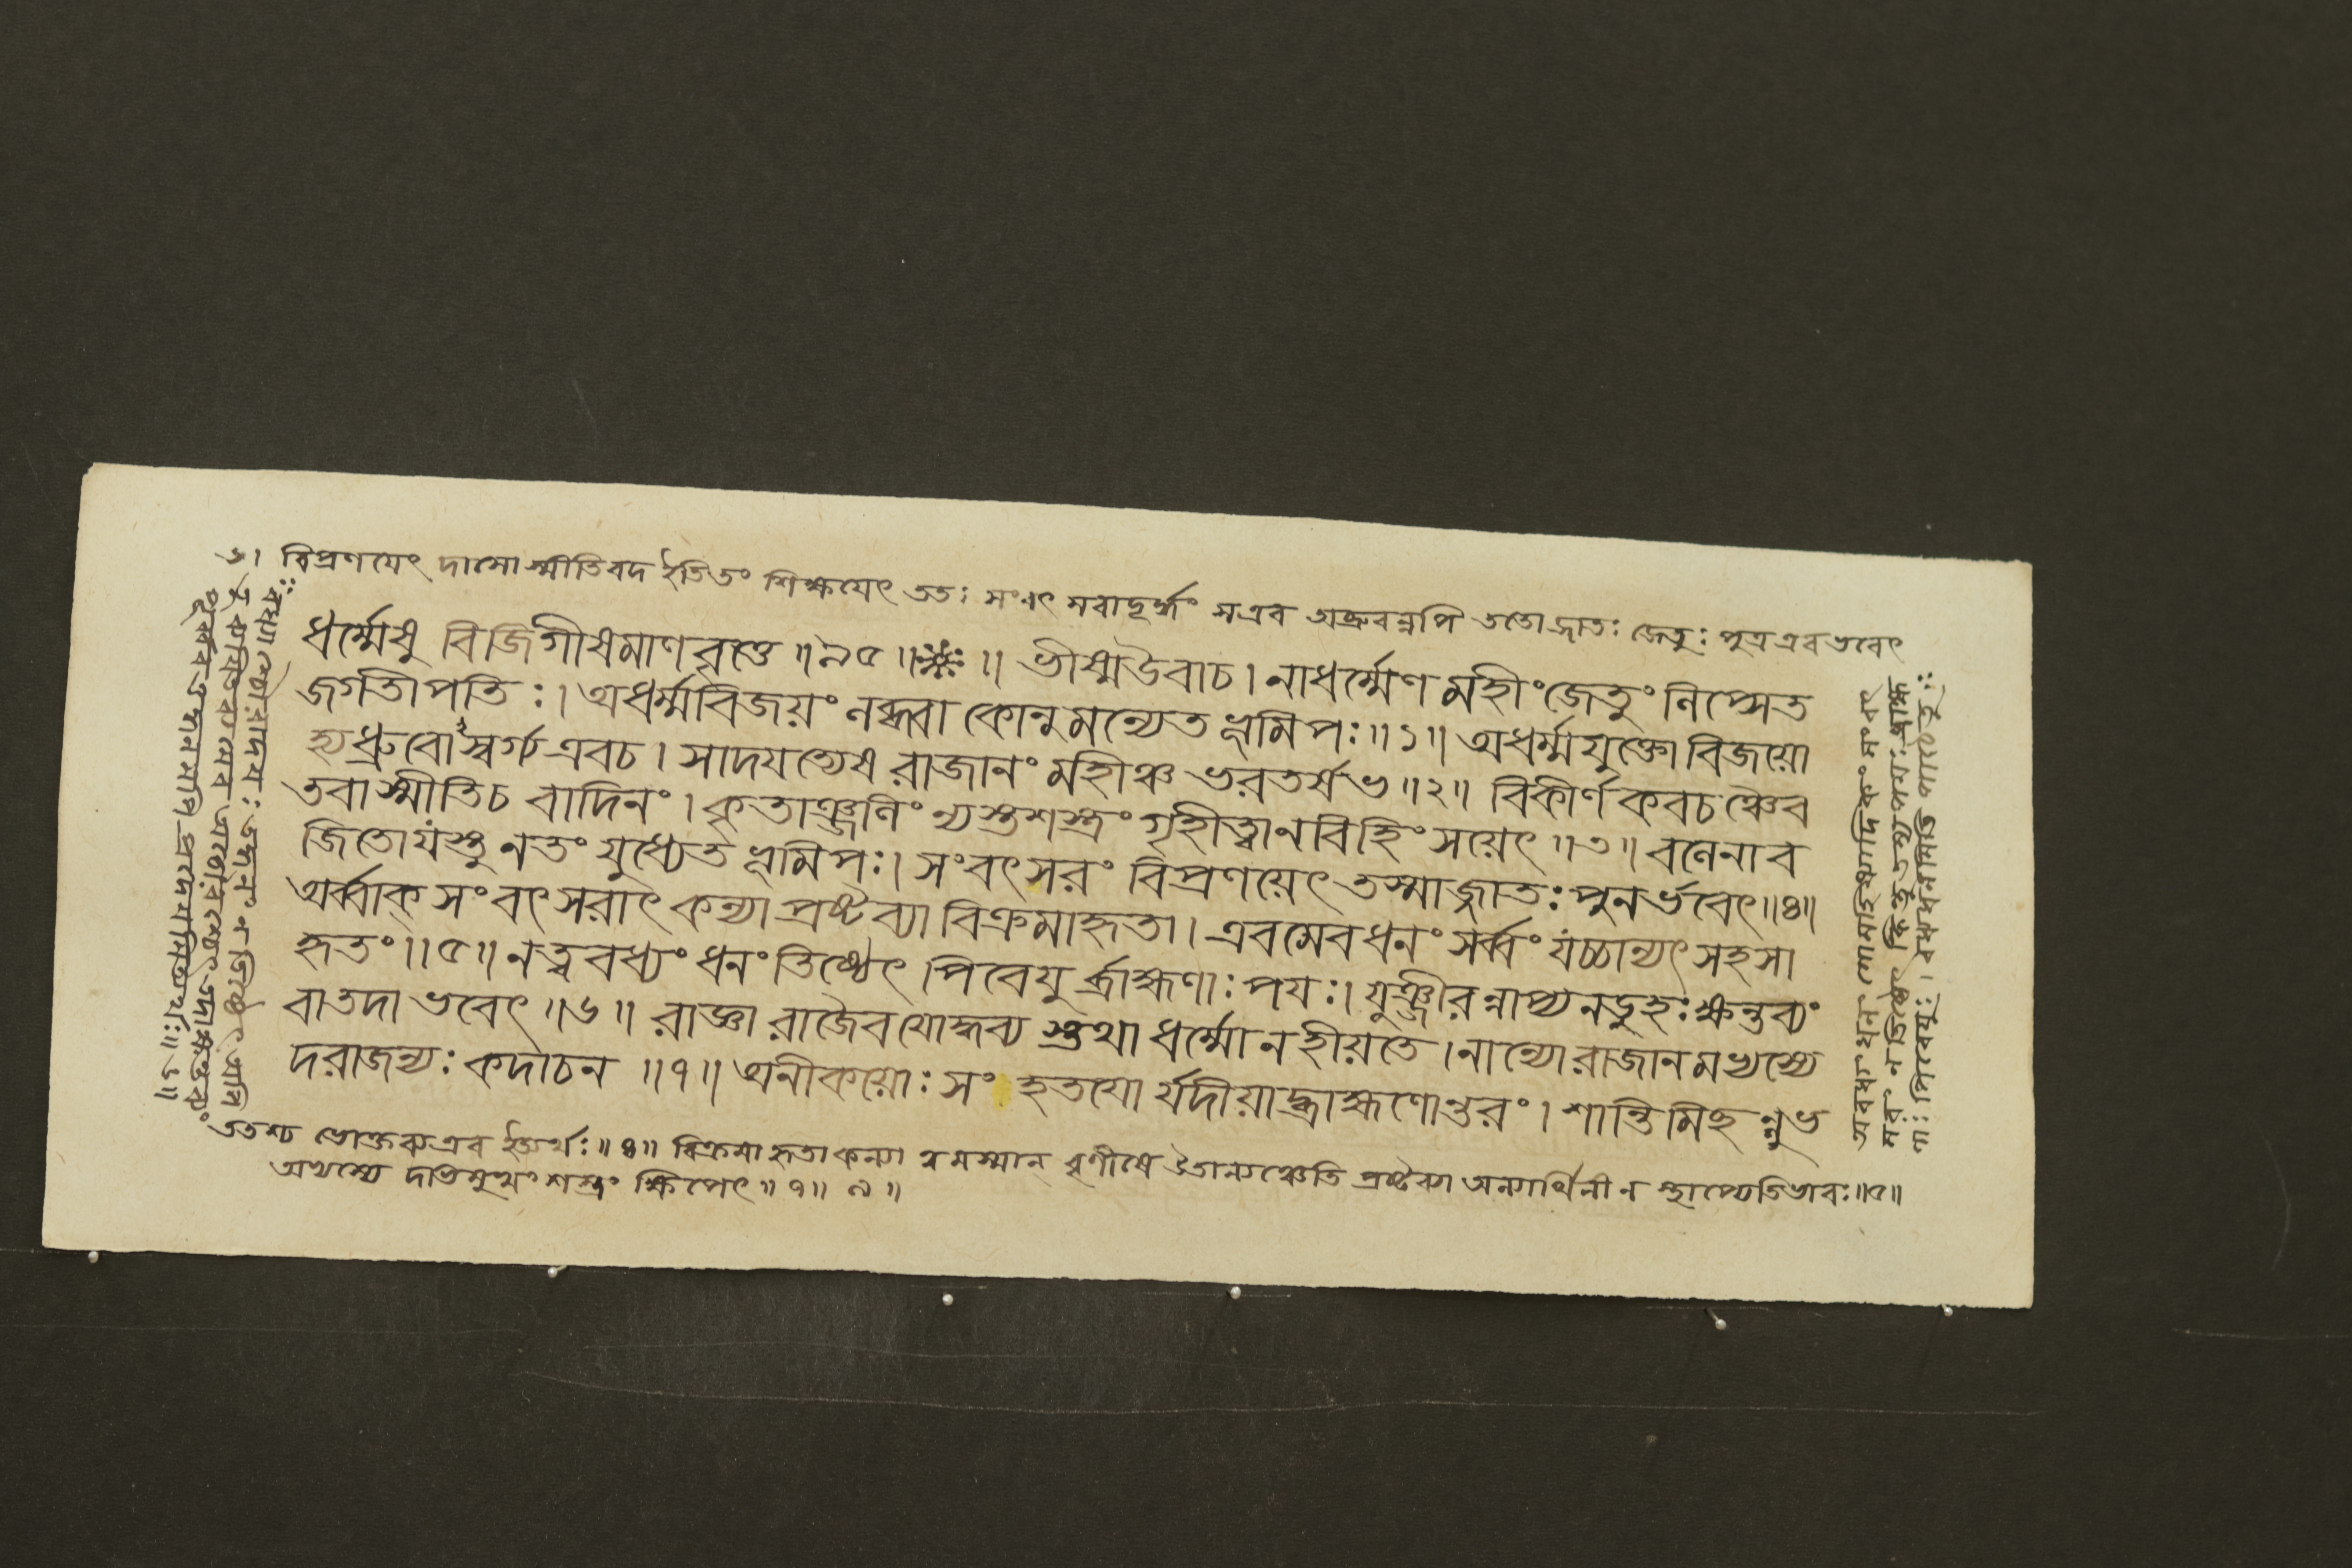 ৬। বিপ্রণযেৎ দাসোস্মীতিবদ ইতিতং শিক্ষযেৎ ততঃ সংবৎ সরাদূর্দ্ধং সএব অব্রুবন্নপি ততোজাতঃ জেতুঃ পুত্রএবভবেৎ
ধর্ম্মেষু বিজিগীষমাণবৃত্তে ॥৯৫॥ ॥ ভীষ্মউবাচ। নাধর্ম্মেণ মহীংজেতুং লিপ্সেত
জগতীপতিঃ। অধর্ম্মবিজয়ং লব্ধ্বা কোনুমন্যেত ভূমিপঃ॥১॥ অধর্ম্মযুক্তো বিজয়ো
হ্যধ্রুবোঽস্বর্গ্য এবচ। সাদযত্যেষ রাজানং মহীঞ্চ ভরতর্ষভ॥২॥ বিকীর্ণ কবচঞ্চৈব
তবাস্মীতিচ বাদিনং। কৃতাঞ্জলিং ন্যস্তশস্ত্রং গৃহীত্বানবিহিংসয়েৎ॥৩॥ বলেনাব
জিতোযস্তু নতং যুধ্যেত ভূমিপঃ। সংবৎসরং বিপ্রণয়েৎ তস্মাজ্জাতঃ পুনর্ভবেৎ॥৪॥
অর্ব্বাক্ সংবৎসরাৎ কন্যা প্রষ্টব্যা বিক্রমাহৃতা। এবমেবধনং সর্ব্বং যচ্চান্যৎ সহসা
হৃতং॥৫॥ নত্ববধ্যং ধনং তিষ্ঠেৎ পিবেযু র্ব্রাহ্মণাঃ পযঃ। যুঞ্জীরন্নাপ্যনডুহঃ ক্ষন্তব্যং
বাতদা ভবেৎ॥৬॥ রাজ্ঞা রাজৈব যোদ্ধব্য স্তথা ধর্ম্মোনহীয়তে। নান্যোরাজানমভ্যস্যে
দরাজন্যঃ কদাচন ॥৭॥ অনীকয়োঃ সংহতযো র্যদীয়াদ্ব্রাহ্মণোন্তরং। শান্তিমিচ্ছ ন্নুভ
ততশ্চ মোক্তব্যএব ইত্যর্থঃ॥৪॥ বিক্রমাহৃতা কন্যা ত্বমস্মান্ বৃণীষে উতান্যঞ্চেতি প্রষ্টব্যা অন্যার্থিনী ন স্থাপ্যেতিভাবঃ॥৫॥
অভ্যস্যে দভিমুখং শস্ত্রং ক্ষিপেৎ॥৭॥ ৮॥
অবধ্য ধনং
নং ন তিষ্ঠেৎ কিন্তু তস্য পযঃ ব্রাহ্ম
ণাঃ পিবেযুঃ।
পূর্ব্ববত্তদ্ধনমপি প্রদেযমিত্যর্থঃ॥৬॥